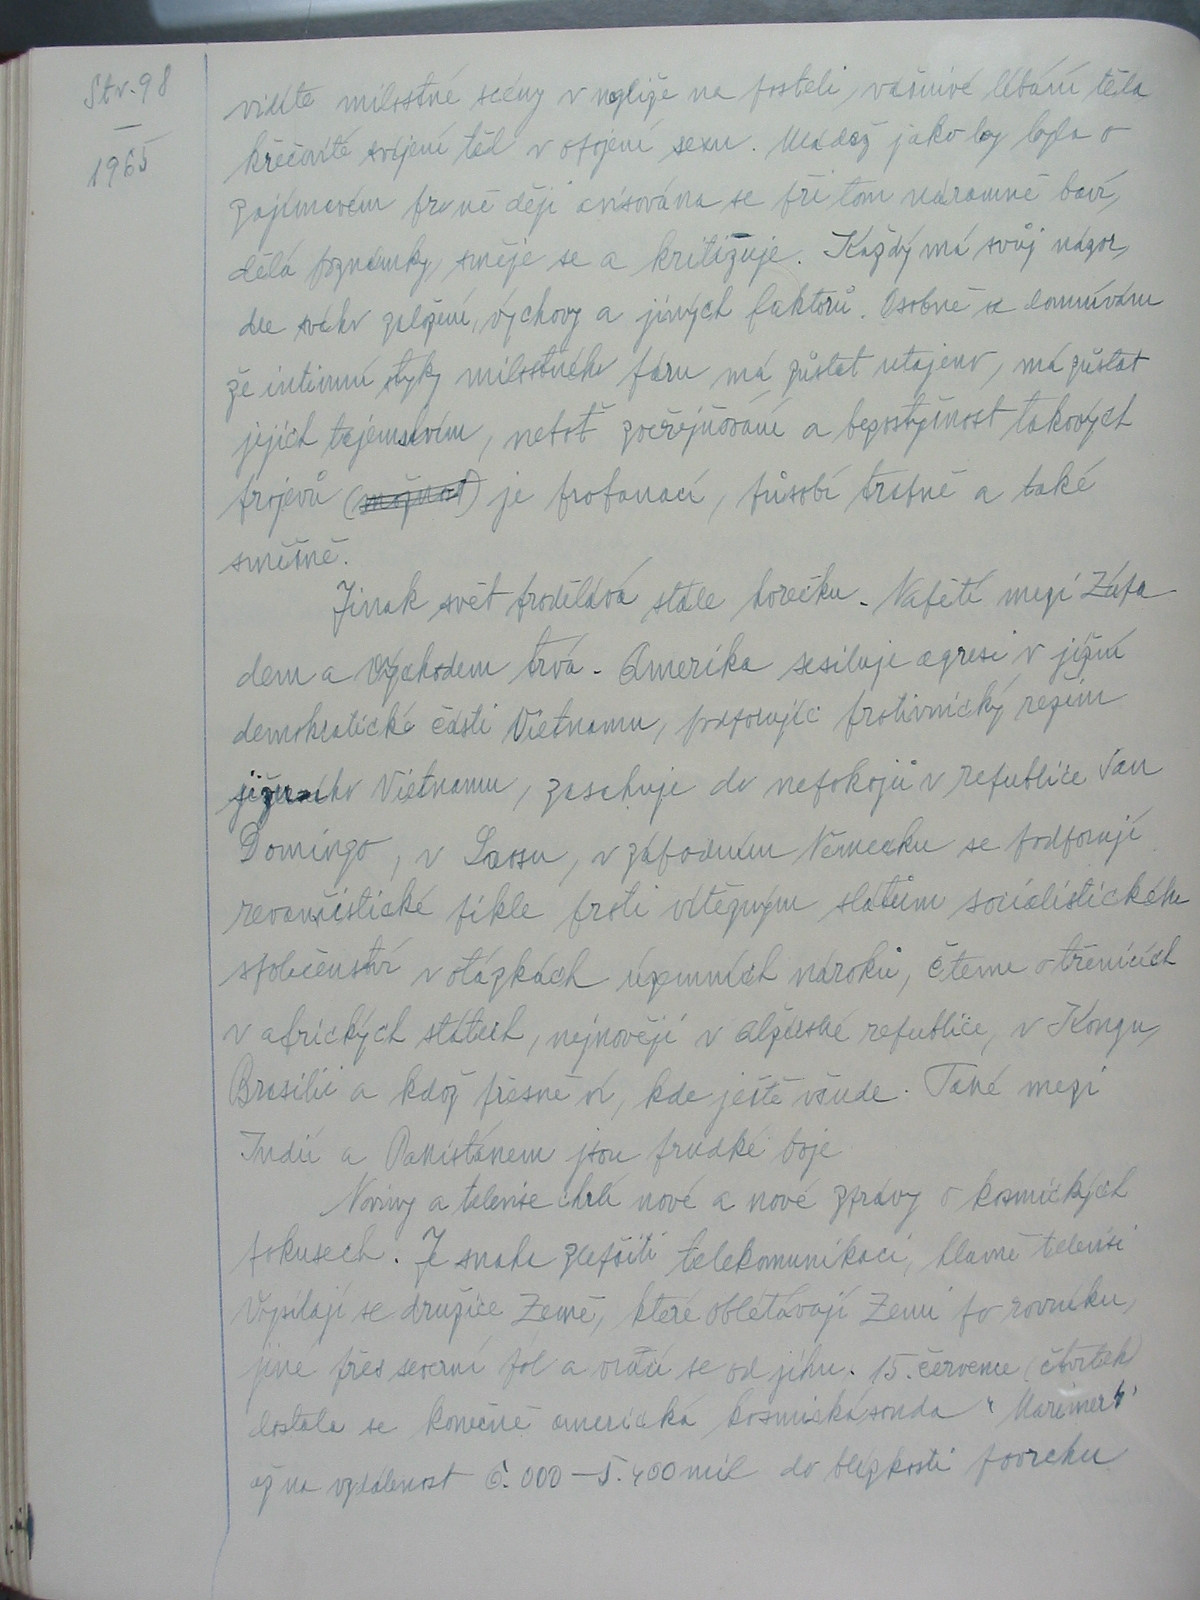 Str. 98
1965
vidíte milostné scény v negližé na posteli, vášnivé líbání těla
křečovité svíjení těl v opojení sexu. Mládež jako by byla o
zajímavém prvně ději avisována se při tom náramně baví,
dělá poznámky, směje se a kritizuje. Každý má svůj názor,
dle svého založení, výchovy a jiných faktorů. Osobně se domnívám
že intimní styky milostného páru má zůstat utajeno, má zůstat
jejich tajemstvím, neboť zveřejňování a bezostyšnost takových
projevů (možnost) je profanací, působí trapně a také
směšně.
Jinak svět prodělává stále horečku. Napětí mezi Západem
dem a Východem trvá. Amerika sesiluje agresi v jižní
demokratické části Vietnamu, podporujíc protivnický režim
jižního Vietnamu, zasahuje do nepokojů v republice San
Domingo, v Laosu, v západním Německu se podporují
revanšistické pikle proti vítězným státům socialistického
společenství v otázkách územních nároků, čteme o třenicích
v afrických státech, nejnověji v alžírské republice, v Kongu,
Brasilii a kdož přesně ví, kde ještě všude. Také mezi
Indií a Pakistánem jsou prudké boje
Noviny a televise chrlí nové a nové zprávy o kosmických
pokusech. Je snaha zlepšiti telekomunikaci, hlavně televisi
Vypílají se družice Země, které oblétávají Zemi po rovníku,
jiné přes severní pól a vrátí se od jihu. 15. července (čtvrtek)
dostala se konečně americká kosmická sonda "Mariner 4"
až na vzdálenost 6.000 – 5.400 mil do blízkosti povrchu